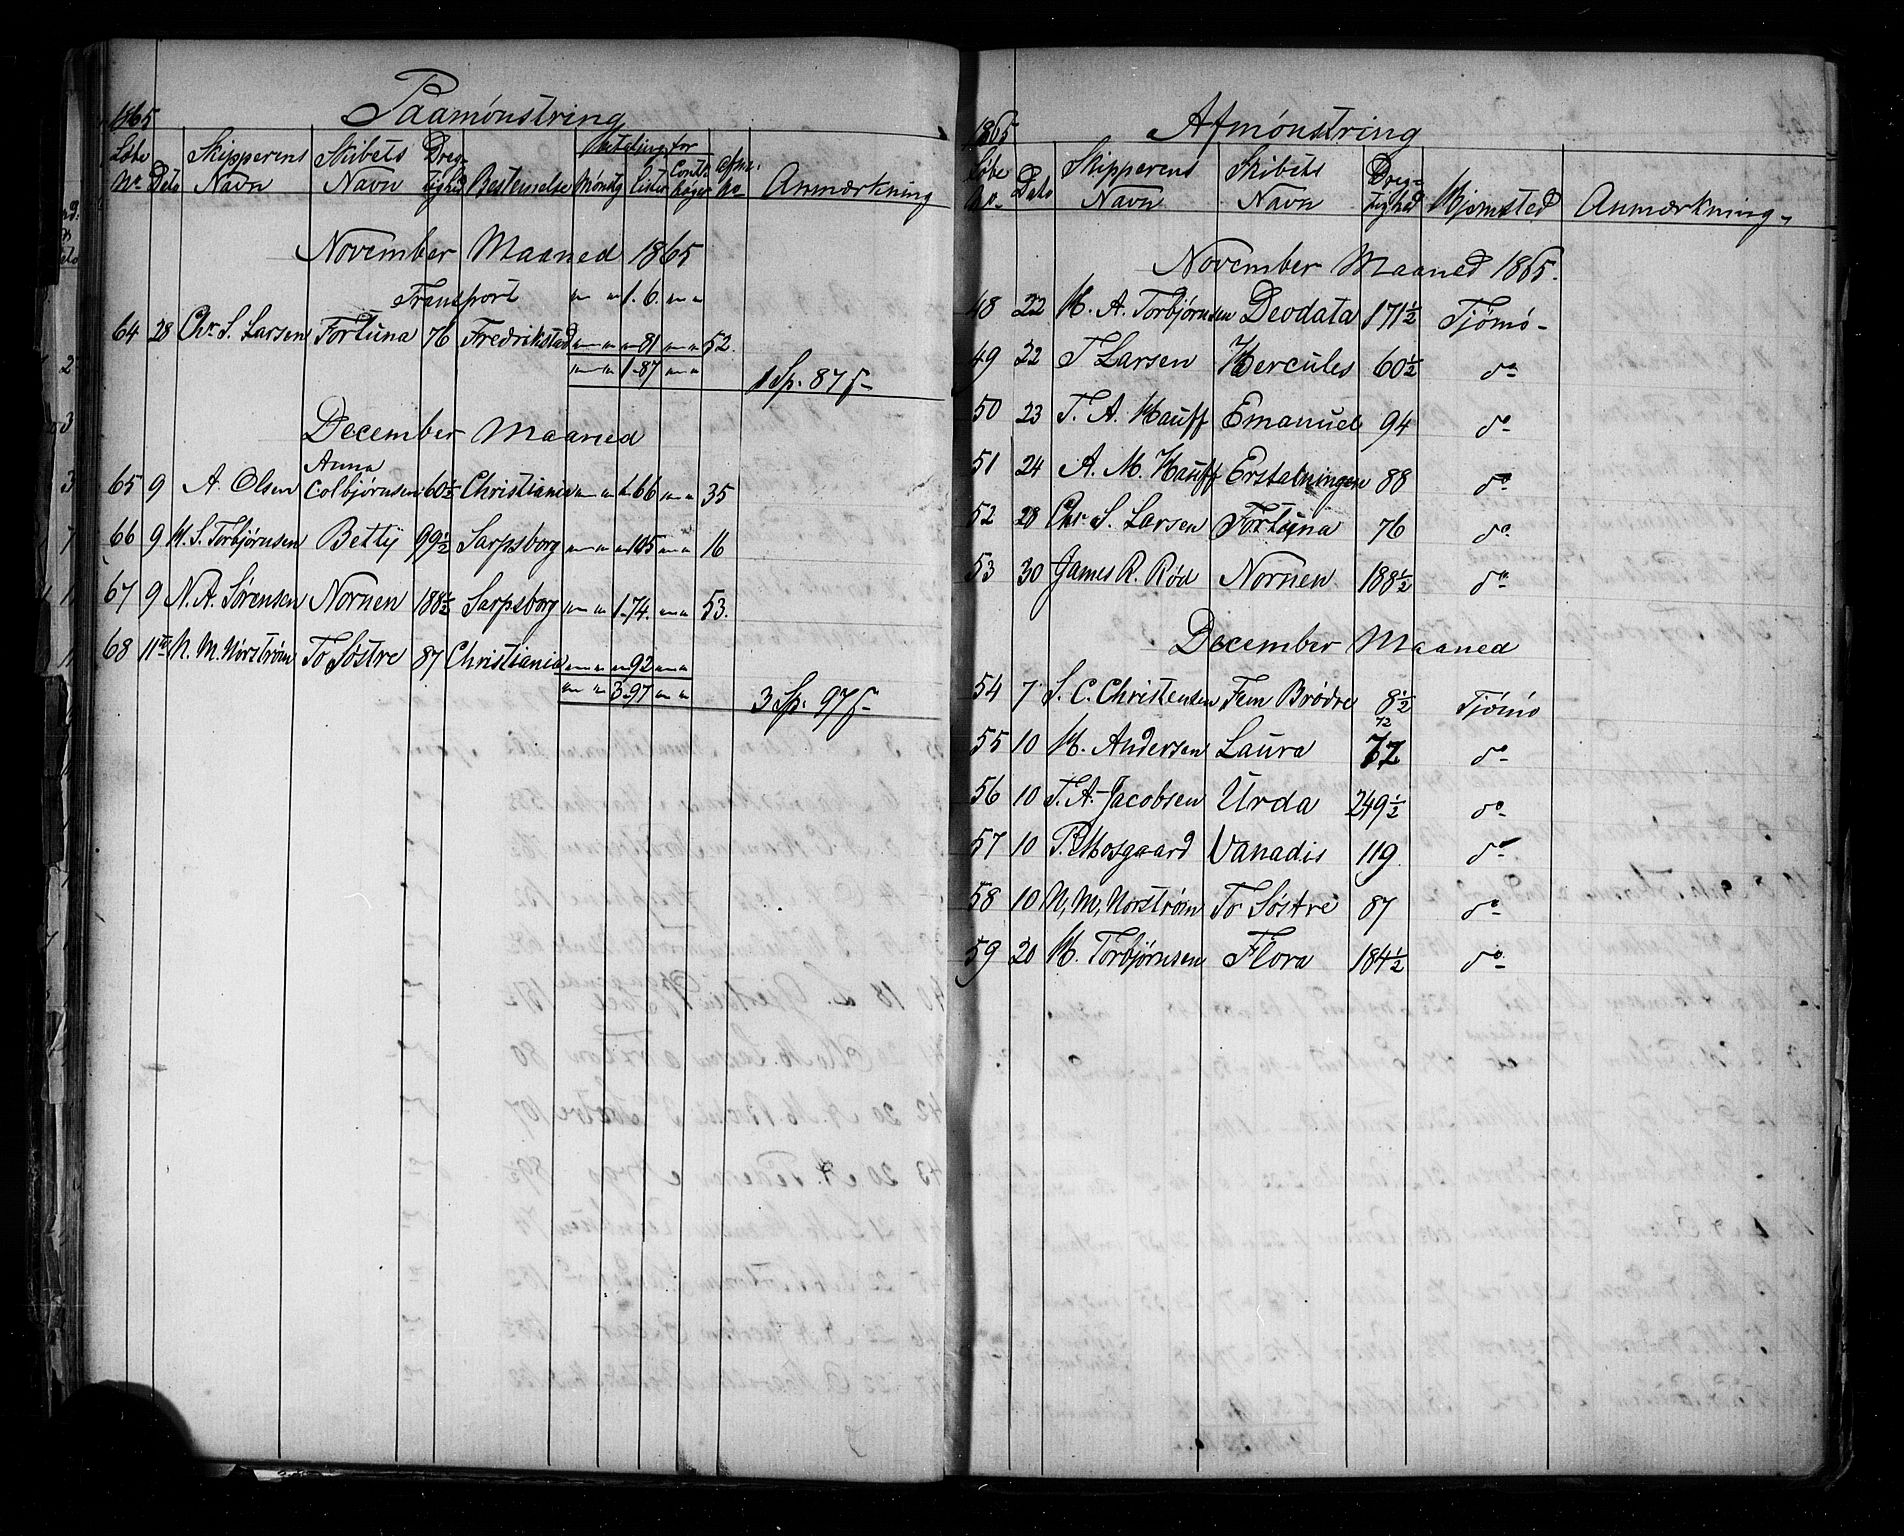 1865 Paamønstring
Løbe No Dato Skipperens Navn Skibets Navn Dreg-tighed Bestemelse Betaling for Mønstg Lister Cont: bøger No Anmærkning
November Maaned 1865
Transport " " 1. 6. " "
64 28 Chr. S. Larsen Fortuna 76 Fredrikstad " " " 81 " " 52.
" " 1-87 " "
1 Sp. 87 ſ-
December Maaned
65 9 A. Olsen Anna Colbjørnsen 60½ Christiania " " " 66 " " 35
66 9 H. S. Torbjørnsen Betty 99½ Sarpsborg " " " 105 " " 16
67 9 N. A. Sørensen Nornen 188½ Sarpsborg " " 1-74. " " 53.
68 11te N. M. Norstrøm To Søstre 87 Christiania " " " 92 " "
" " 3-97 " "
3 Sp. 97 ſ-
1865 Afmønstring
Løbe No. Dato Skipperens Navn Skibets Navn Dreg-tighed Hjemsted Anmærkning
November Maaned 1865.
48 22 H. A. Torbjørnsen Deodata 171½ Tjømø-
49 22 T Larsen Hercules 60½ do-
50 23 T. A. Hauff Emanuel 94 do-
51 24 A. M. Hauff Erstatningen 88 do-
52 28 Chr. S. Larsen Fortuna 76 do-
53 30 James R. Rød Nornen 188½ do-
December Maaned
54 7 S. C. Christensen Fem Brødre 8½ Tjømø
55 10 H. Andersen Laura 72 72 do-
56 10 T. A. Jacobsen Urda 249½ do-
57 10 P. Mosgaard Vanadis 119 do-
58 10 N. M. Norstrøm To Søstre 87 do-
59 20 H. Torbjørnsen Flora 184½ do-